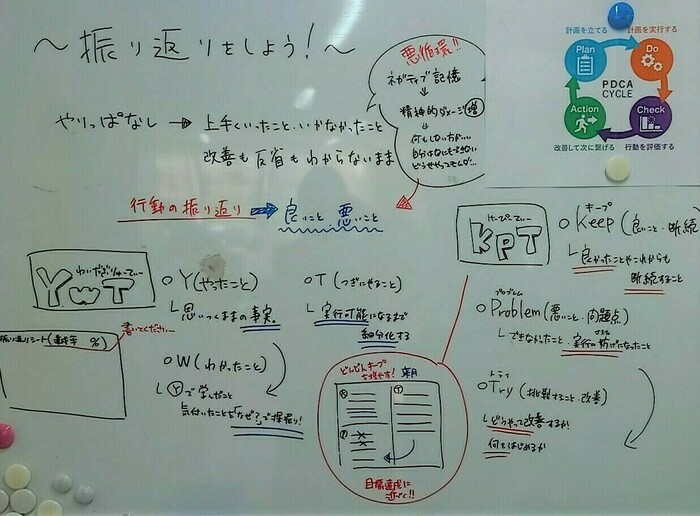 ～振り返りをしよう！～
やりっぱなし → 上手くいったこと、いかなかったこと
改善も反省もわからないまま
悪循環!!
ネガティブ記憶
↓
精神的ダメージ増
↓
何もしない方が…
自分はなにもできない
どうせやってもムダ…
計画を立てる
計画を実行する
Plan
Do
PDCA
CYCLE
Action
Check
改善して次に繋げる
行動を評価する
行動の振り返り → 良いこと、悪いこと
わいだぶりゅーてぃー
YWT
○Y(やったこと)
└思いつくままの事実。
○W(わかったこと)
└Ⓨで学んだこと
気付いたことを「なぜ？」で深堀り！
○T(つぎにやること)
└実行可能になるまで
細分化する
書いてください
振り返りシート(達成率 %)
けーぴーてぃー
KPT
キープ
○Keep(良いこと・継続)
└良かったことやこれからも
継続すること
プロブレム
○Problem(悪いこと・問題点)
└できなかったこと、実行の妨げになったこと
トライ
○Try(挑戦すること・改善)
└どうやって改善するか！
何をはじめるか
どんどんキープを増やす！
Ⓚ
Ⓣ
Ⓟ
目標達成に
近づく!!